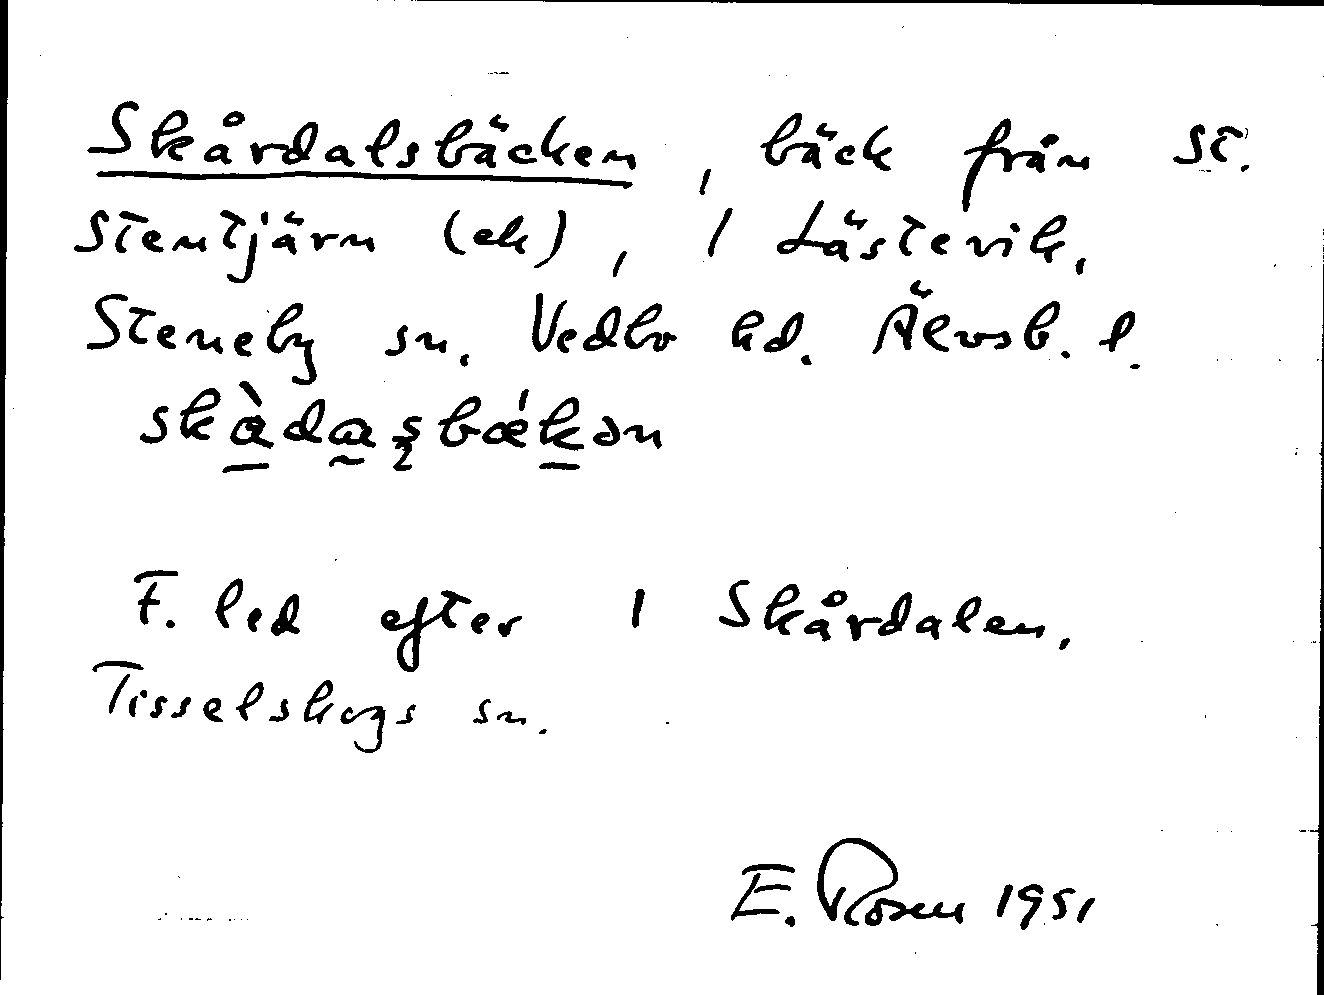 Skårdalsbäcken, bäck från St.
Stentjärn (ek), 1 Lästevik,
Steneby sn. Vedbo hd. Älvsb. l.
F. led efter 1 Skårdalen,
Tisselskogs sn.
E. Rosen 1951